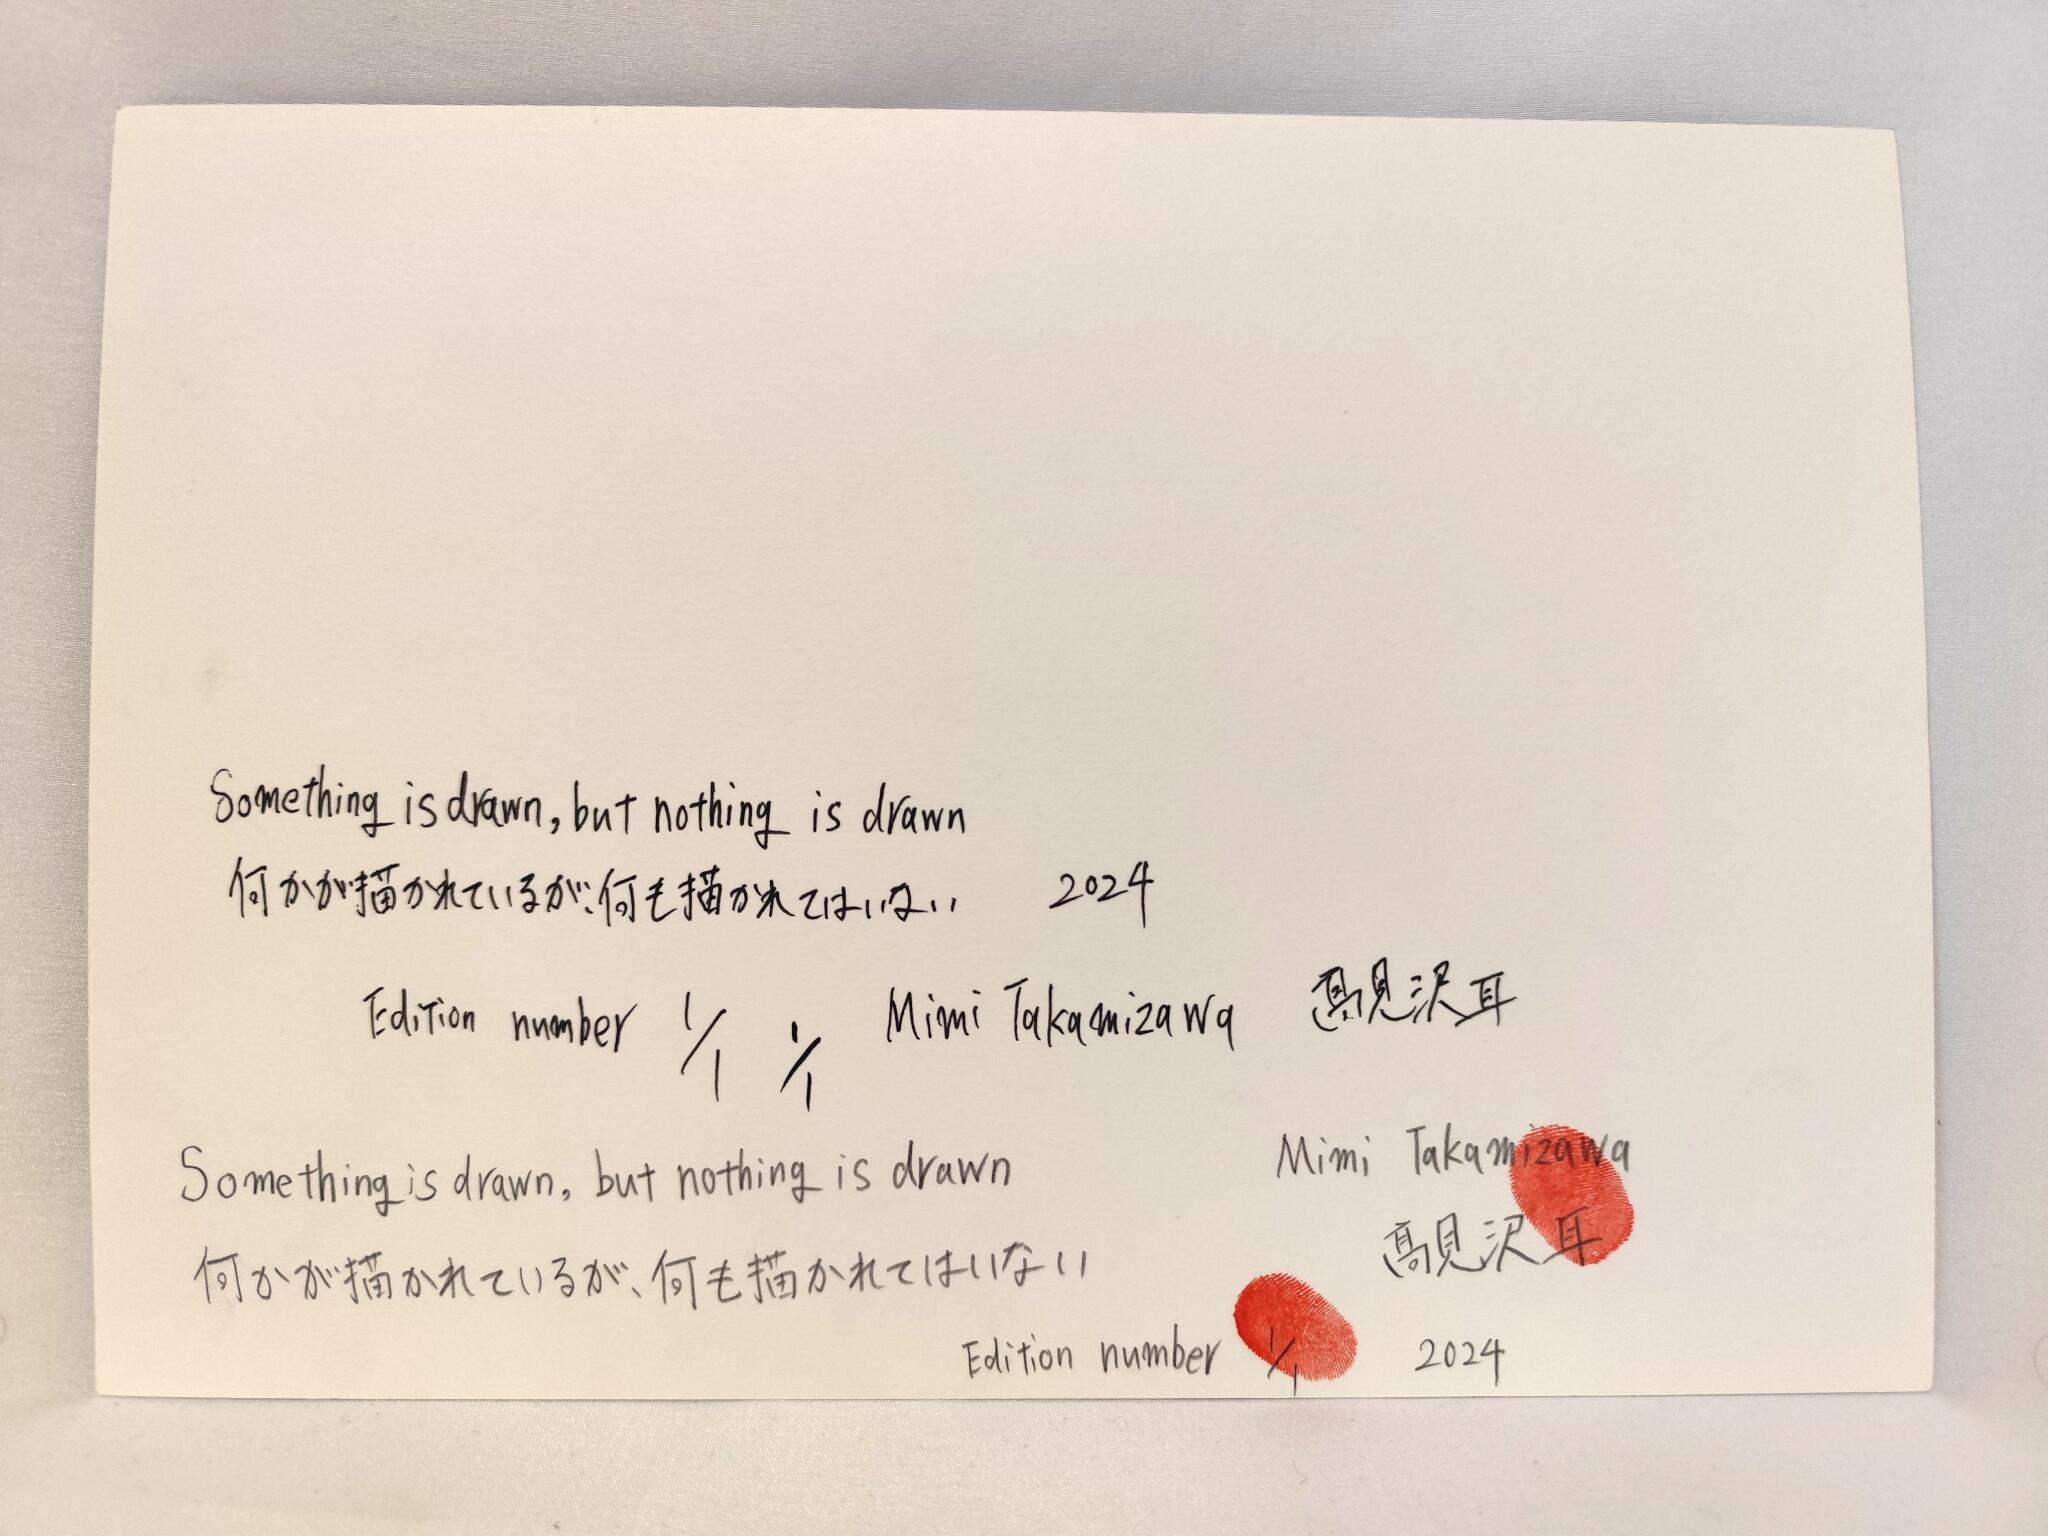 Something is drawn, but nothing is drawn
何かが描かれているが、何も描かれてはいない 2024
Edition number 1/1 1/1 Mimi Takamizawa 髙見沢耳
Something is drawn, but nothing is drawn
Mimi Takamizawa
何かが描かれているが、何も描かれてはいない
髙見沢耳
Edition number 1/1 2024